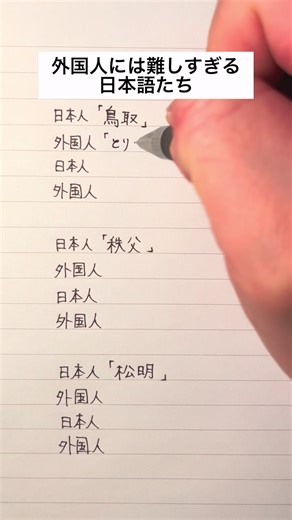 外国人には難しすぎる
日本語たち
日本人「鳥取」
外国人「とり
日本人
外国人
日本人「秩父」
外国人
日本人
外国人
日本人「松明」
外国人
日本人
外国人